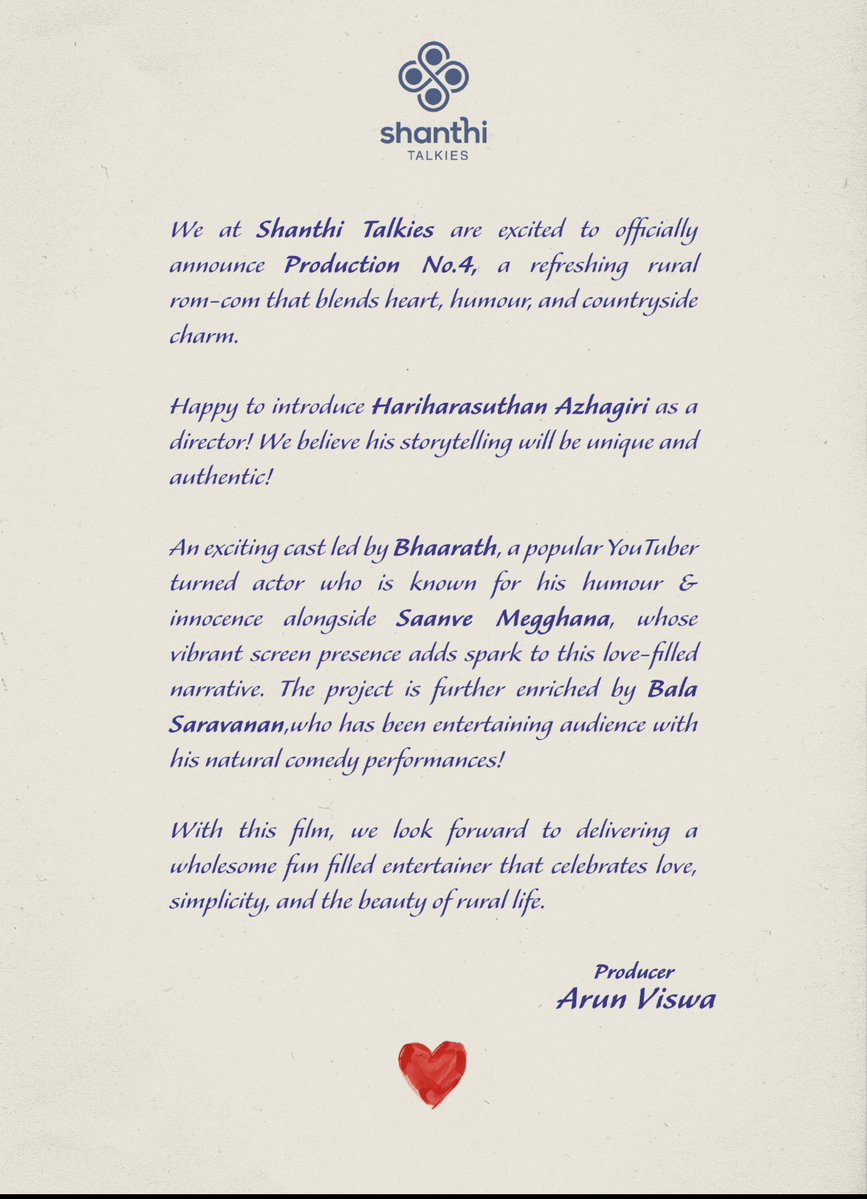 shanthi
TALKIES
We at Shanthi Talkies are excited to officially
announce Production No.4, a refreshing rural
rom-com that blends heart, humour, and countryside
charm.
Happy to introduce Hariharasuthan Azhagiri as a
director! We believe his storytelling will be unique and
authentic!
An exciting cast led by Bhaarath, a popular YouTuber
turned actor who is known for his humour &
innocence alongside Saanve Megghana, whose
vibrant screen presence adds spark to this love-filled
narrative. The project is further enriched by Bala
Saravanan,who has been entertaining audience with
his natural comedy performances!
With this film, we look forward to delivering a
wholesome fun filled entertainer that celebrates love,
simplicity, and the beauty of rural life.
Producer
Arun Viswa